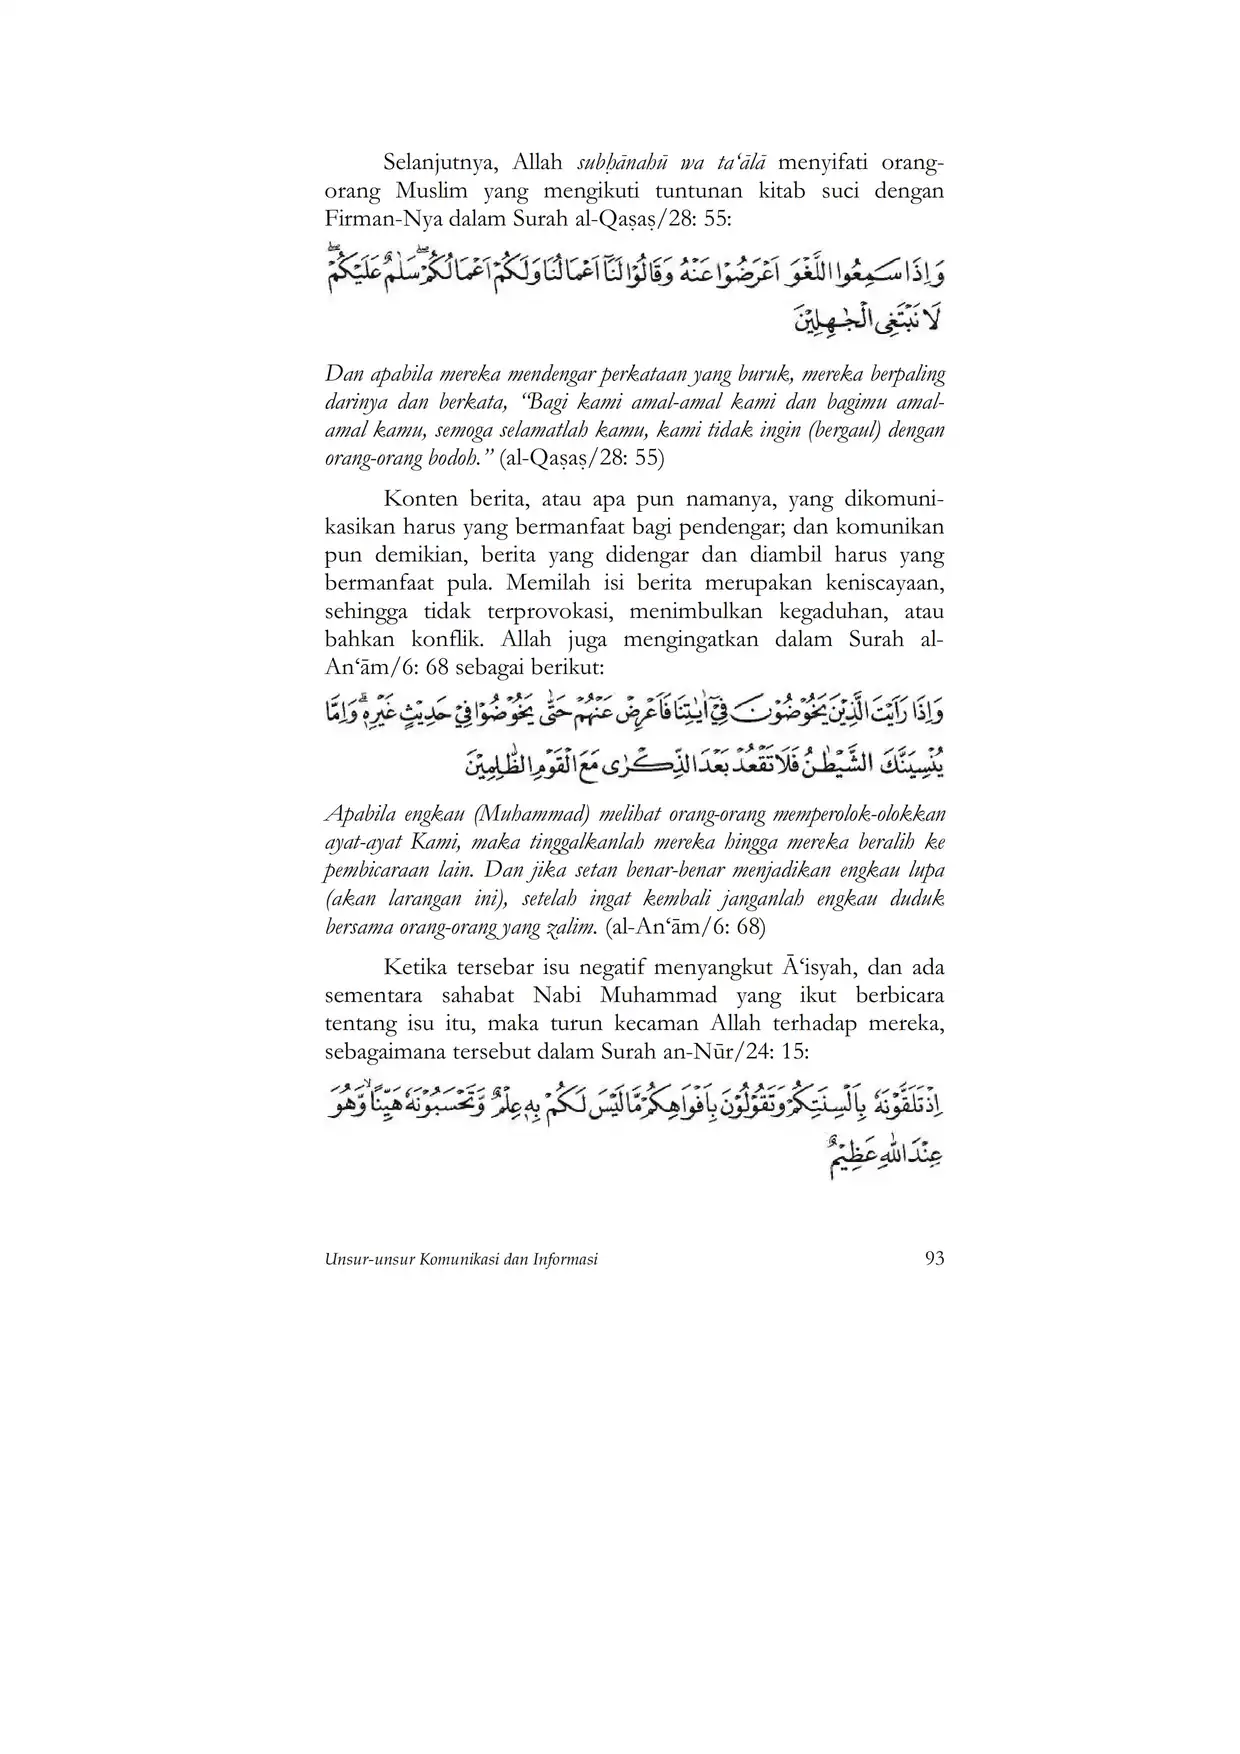 Selanjutnya, Allah subḥānahū wa ta‘ālā menyifati orang-
orang Muslim yang mengikuti tuntunan kitab suci dengan
Firman-Nya dalam Surah al-Qaṣaṣ/28: 55:
وَاِذَا سَمِعُوا اللَّغْوَ اَعْرَضُوْا عَنْهُ وَقَالُوْا لَنَآ اَعْمَالُنَا وَلَكُمْ اَعْمَالُكُمْ ۖ سَلٰمٌ عَلَيْكُمْ ۖ
لَا نَبْتَغِى الْجٰهِلِيْنَ
Dan apabila mereka mendengar perkataan yang buruk, mereka berpaling
darinya dan berkata, “Bagi kami amal-amal kami dan bagimu amal-
amal kamu, semoga selamatlah kamu, kami tidak ingin (bergaul) dengan
orang-orang bodoh.” (al-Qaṣaṣ/28: 55)
Konten berita, atau apa pun namanya, yang dikomuni-
kasikan harus yang bermanfaat bagi pendengar; dan komunikan
pun demikian, berita yang didengar dan diambil harus yang
bermanfaat pula. Memilah isi berita merupakan keniscayaan,
sehingga tidak terprovokasi, menimbulkan kegaduhan, atau
bahkan konflik. Allah juga mengingatkan dalam Surah al-
An‘ām/6: 68 sebagai berikut:
وَاِذَا رَاَيْتَ الَّذِيْنَ يَخُوْضُوْنَ فِيْٓ اٰيٰتِنَا فَاَعْرِضْ عَنْهُمْ حَتّٰى يَخُوْضُوْا فِيْ حَدِيْثٍ غَيْرِهٖۗ وَاِمَّا
يُنْسِيَنَّكَ الشَّيْطٰنُ فَلَا تَقْعُدْ بَعْدَ الذِّكْرٰى مَعَ الْقَوْمِ الظّٰلِمِيْنَ
Apabila engkau (Muhammad) melihat orang-orang memperolok-olokkan
ayat-ayat Kami, maka tinggalkanlah mereka hingga mereka beralih ke
pembicaraan lain. Dan jika setan benar-benar menjadikan engkau lupa
(akan larangan ini), setelah ingat kembali janganlah engkau duduk
bersama orang-orang yang zalim. (al-An‘ām/6: 68)
Ketika tersebar isu negatif menyangkut Ā‘isyah, dan ada
sementara sahabat Nabi Muhammad yang ikut berbicara
tentang isu itu, maka turun kecaman Allah terhadap mereka,
sebagaimana tersebut dalam Surah an-Nūr/24: 15:
اِذْ تَلَقَّوْنَهٗ بِاَلْسِنَتِكُمْ وَتَقُوْلُوْنَ بِاَفْوَاهِكُمْ مَّا لَيْسَ لَكُمْ بِهٖ عِلْمٌ وَّتَحْسَبُوْنَهٗ هَيِّنًاۙ وَّهُوَ
عِنْدَ اللّٰهِ عَظِيْمٌ
Unsur-unsur Komunikasi dan Informasi 93